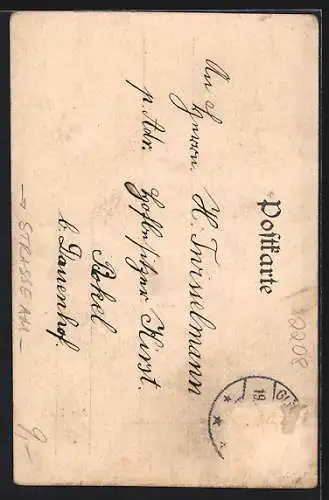 Postkarte
An
Herrn H. Twisselmann
p. Adr. Hofbesitzer Hirst.
Rokel
b. Dauenhof.
→ STRASSE AM -
9,-
2208
19